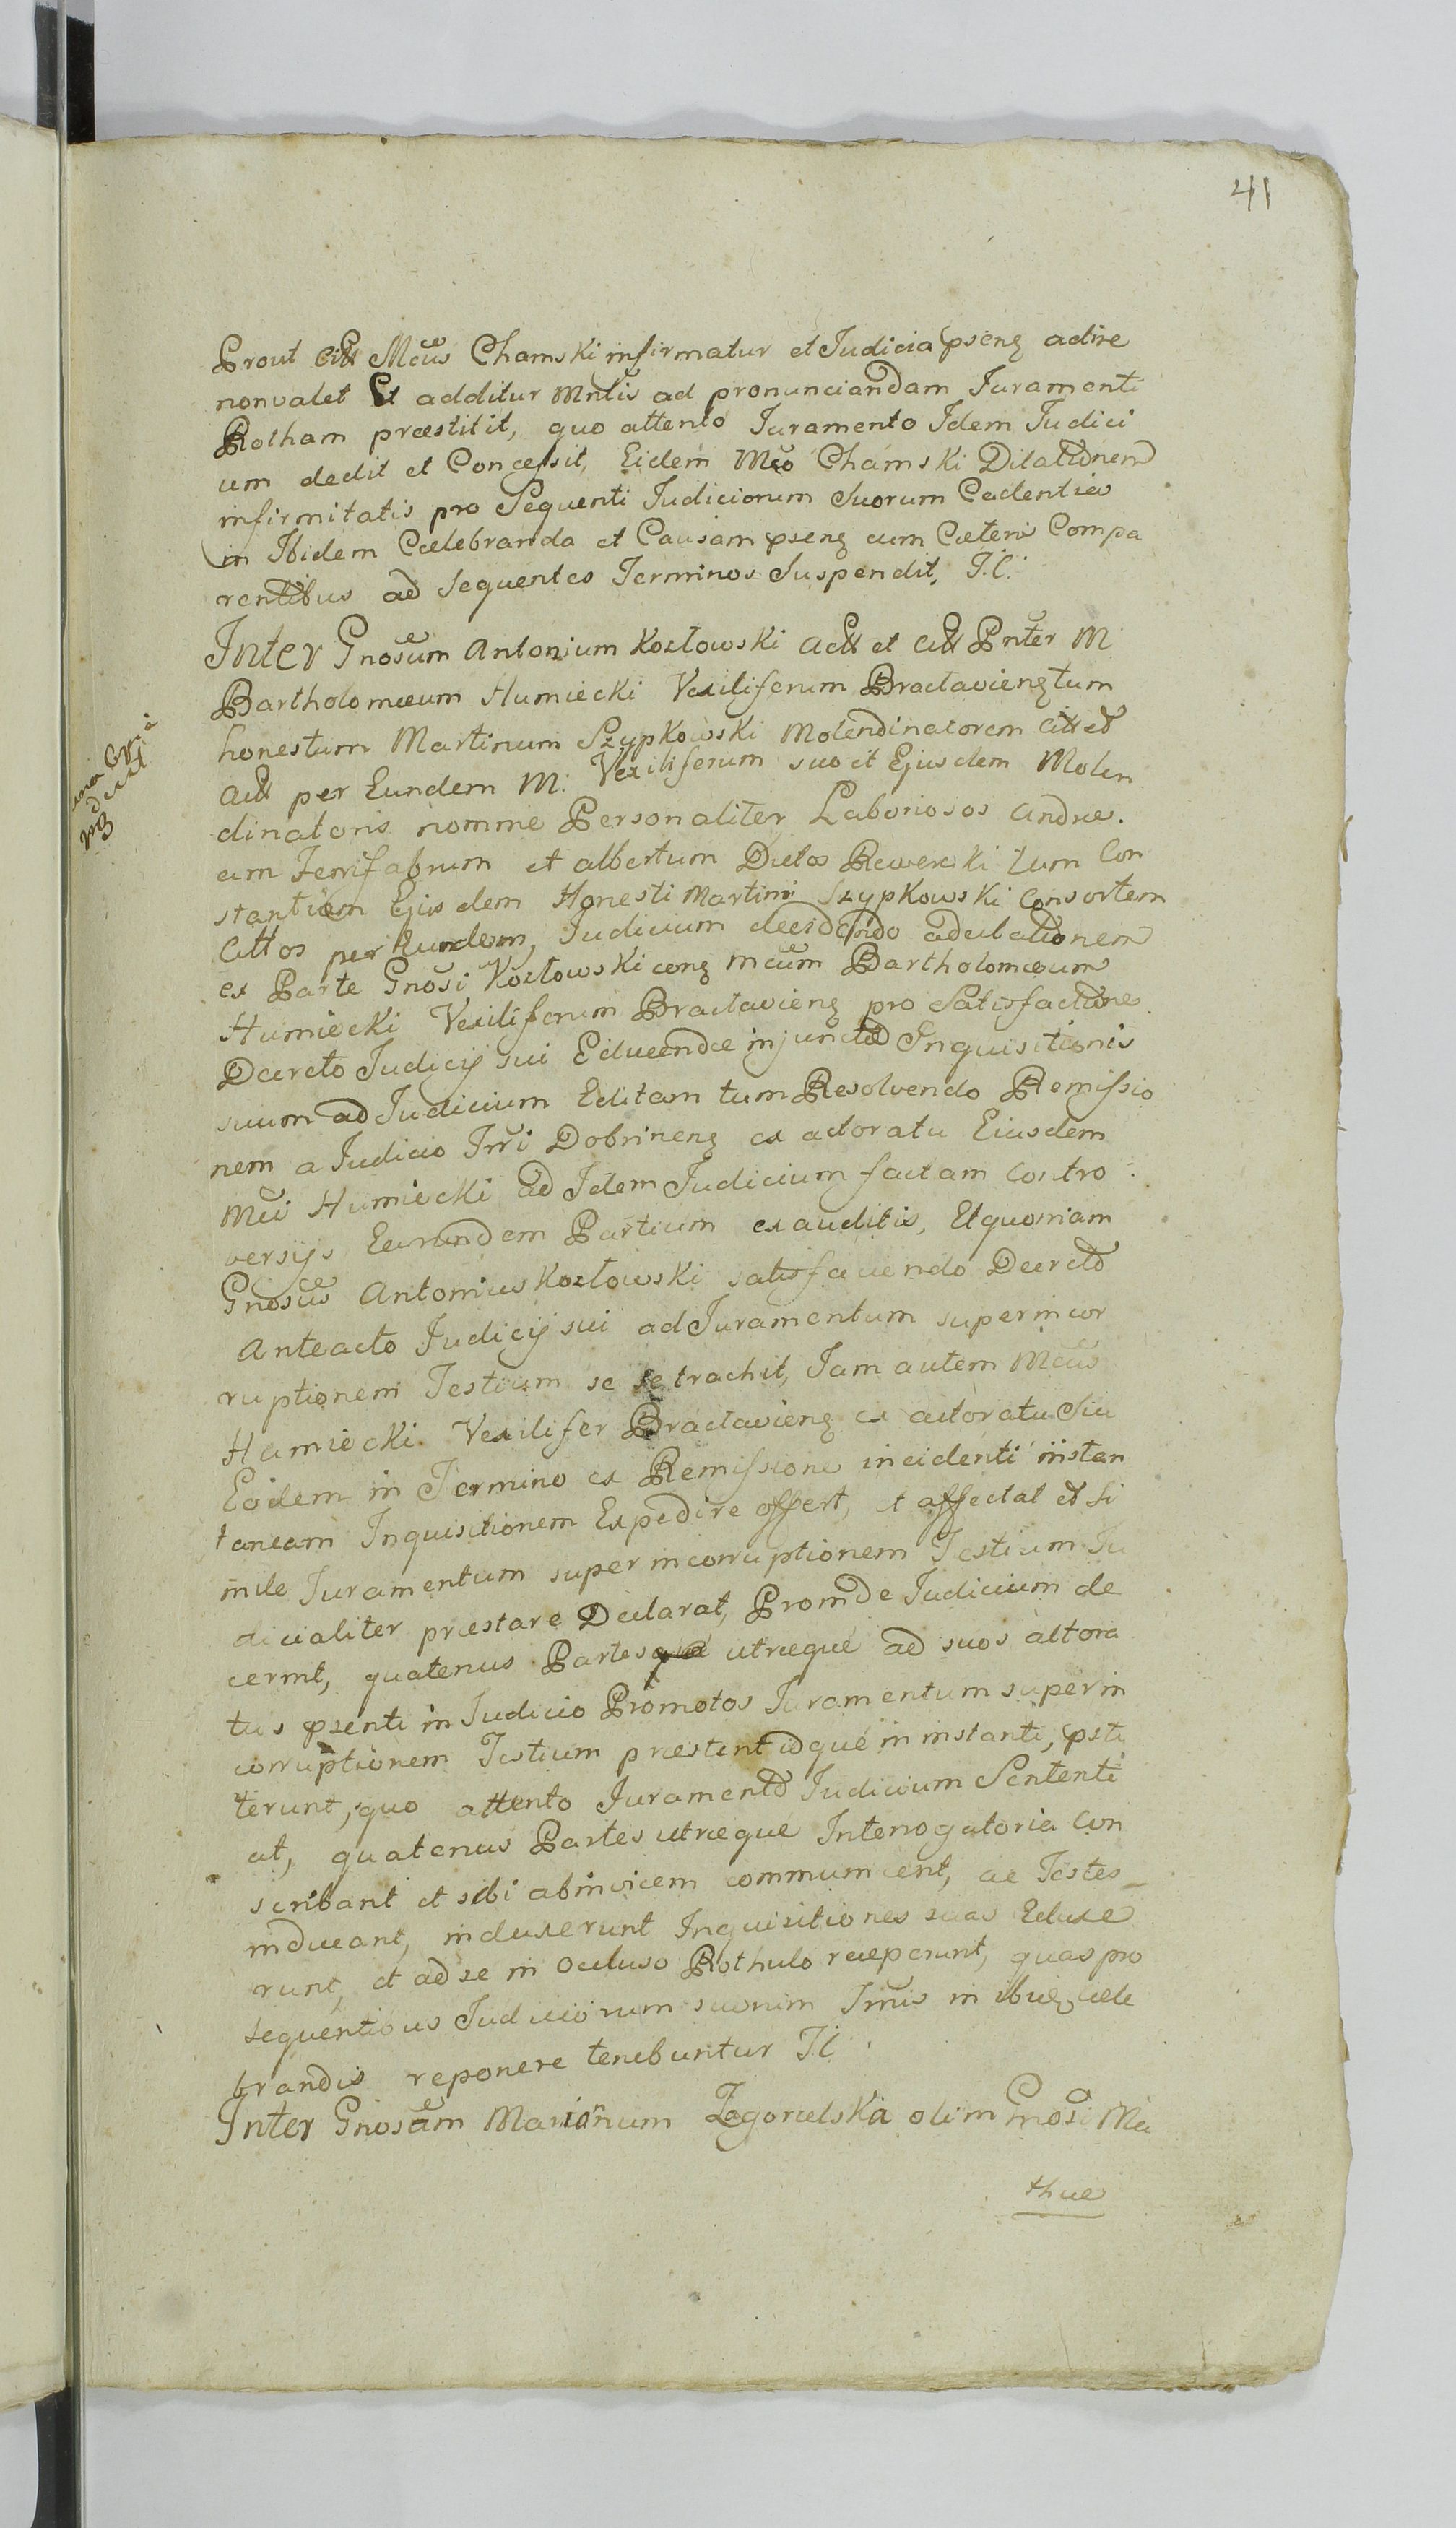 41
Prout Citt Mcus Chamski infirmatur et Judicia pseng adire
non valet Et additur Mntis ad pronunciandam Juramenti
Rotham præstitit, quo attento Juramento Idem Judici
um dedit et Concessit, Eidem Mco Chamski Dilationem
infirmitatis pro Sequenti Judiciorum Suorum Cadentia
in Ibidem Cœlebranda et Causam pseng cum Cæteris Compa
rentibus ad Sequentes Terminos Suspendit, J.C.
Inter Gnosum Antonium Kozłowski Act et Citt Pnter M
Bartholomæum Humiecki Vexiliferum Braclavieng tum
honestum Martinum Szypkowski Molendinatorem Citt et
Act per Eundem M: Vexiliferum suo et Ejusdem Molen
dinatoris nomine Personaliter Laboriosos Andre.
am Ferrifabrum et albertum Dictos Rewerski tum Con
stantiam Ejusdem Honesti Martini Szypkowski Consortem
Cittos per Eundem, Judicium decidendo adcitationem
ex Parte Gnosi Kozłowski ceng Mcum Bartholomæum
Humiecki Vexiliferum Braclavieng pro Satisfactione
Decreto Judicij sui Educendæ injunctæ Inquisitionis
suum ad Judicium Editam tum Resolvendo Remissio
nem a Judicio Trri Dobrineng ex actoratu Eiusdem
Mci Humiecki ad Idem Judicium factam Contro
versijs Earundem Partium exauditis, Et quoniam
Gnosus Antonius Kozłowski satisfaciendo Decreto
Anteacto Judicij sui ad Juramentum super incor
ruptionem Testium se setrachit, Jam autem Mcus
Humiecki Vexilifer Braclavieng ex actoratu Sui
Eodem in Termino ex Remissione incidenti instan
taneam Inquisitionem Expedire offert, et affectat et Si
mile Juramentum super incorruptionem Testium Ju
dicialiter præstare Declarat, Proinde Judicium de
cernit, quatenus Partes utræque ad suos actora
tus psenti in Judicio Promotos Juramentum super in
corruptionem Testium præstent idque in instanti, psti
terunt, quo attento Juramento Judicium Sententi
at, quatenus Partes utræque Interrogatoria Con
scribant et sibi abinvicem communicent, ac Testes
inducant, induxerunt Inquisitiones suas Eduxe
runt, et ad se in Ocluso Rothulo receperunt, quas pro
sequentibus Judiciorum suorum Tmis in ibieg cele
brandis reponere tenebuntur J.C.
Inter Gnosam Mariannum Zagorielska olim Gnosi Ma
thiæ